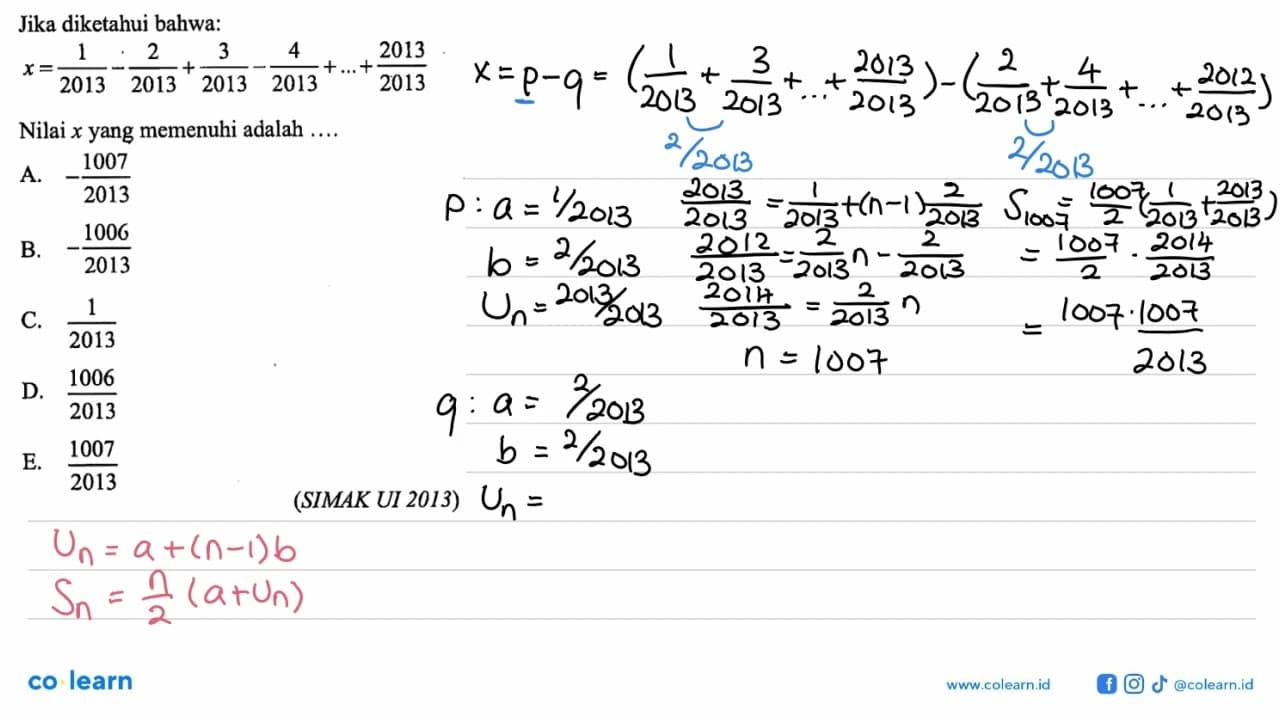 Jika diketahui bahwa:
x = 1/2013 - 2/2013 + 3/2013 - 4/2013 + ... + 2013/2013
Nilai x yang memenuhi adalah ....
A. -1007/2013
B. -1006/2013
C. 1/2013
D. 1006/2013
E. 1007/2013
(SIMAK UI 2013)
Un = a + (n-1)b
Sn = n/2 (a + Un)
x = p - q = (1/2013 + 3/2013 + ... + 2013/2013) - (2/2013 + 4/2013 + ... + 2012/2013)
2/2013 2/2013
p : a = 1/2013
b = 2/2013
Un = 2013/2013
2013/2013 = 1/2013 + (n-1) 2/2013
2012/2013 = 2/2013 n - 2/2013
2014/2013 = 2/2013 n
n = 1007
S1007 = 1007/2 (1/2013 + 2013/2013)
= 1007/2 · 2014/2013
= 1007 · 1007/2013
q : a = 2/2013
b = 2/2013
Un =
co learn
www.colearn.id
@colearn.id